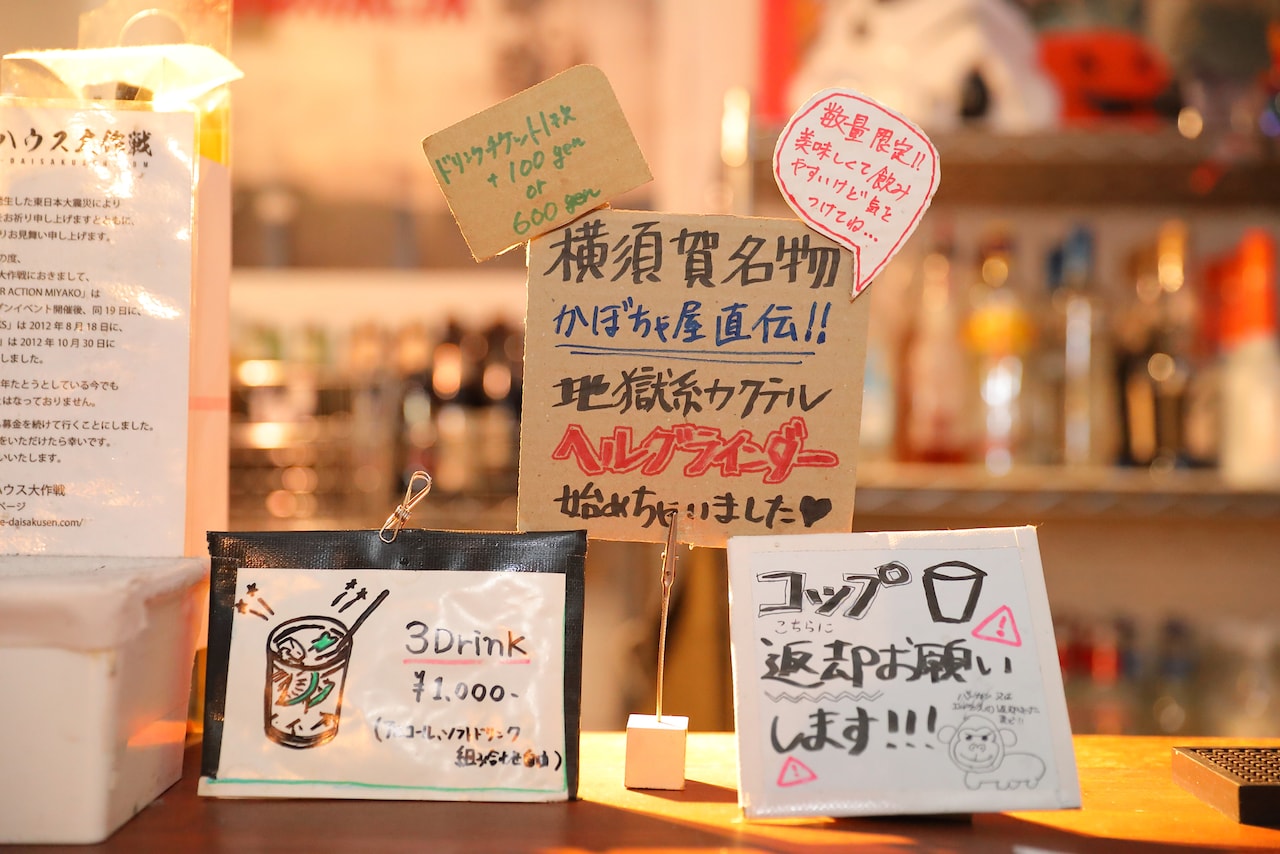 ハウス大作戦
DAISAKUSEN
生した東日本大震災により
お祈り申し上げますとともに、
りお見舞い申し上げます。
の度、
大作戦におきまして、
R ACTION MIYAKO」は
プンイベント開催後、同19日に、
KS」は2012年8月18日に、
」は2012年10月30日に
しました。
年たとうとしている今でも
とはなっておりません。
も募金を続けて行くことにしました。
をいただけたら幸いです。
いいたします。
ハウス大作戦
ページ
e-daisakusen.com/
ドリンクチケット1枚
+100gen
or
600gen
数量限定!!
美味しくて飲み
やすいけど気を
つけてね…
横須賀名物
かぼちゃ屋直伝!!
地獄系カクテル
ヘルグラインダー
始めちゃいました♥
3Drink
¥1,000-
(アルコール、ソフトドリンク
組み合わせ自由)
コップ
こちらに
返却お願い
します!!!